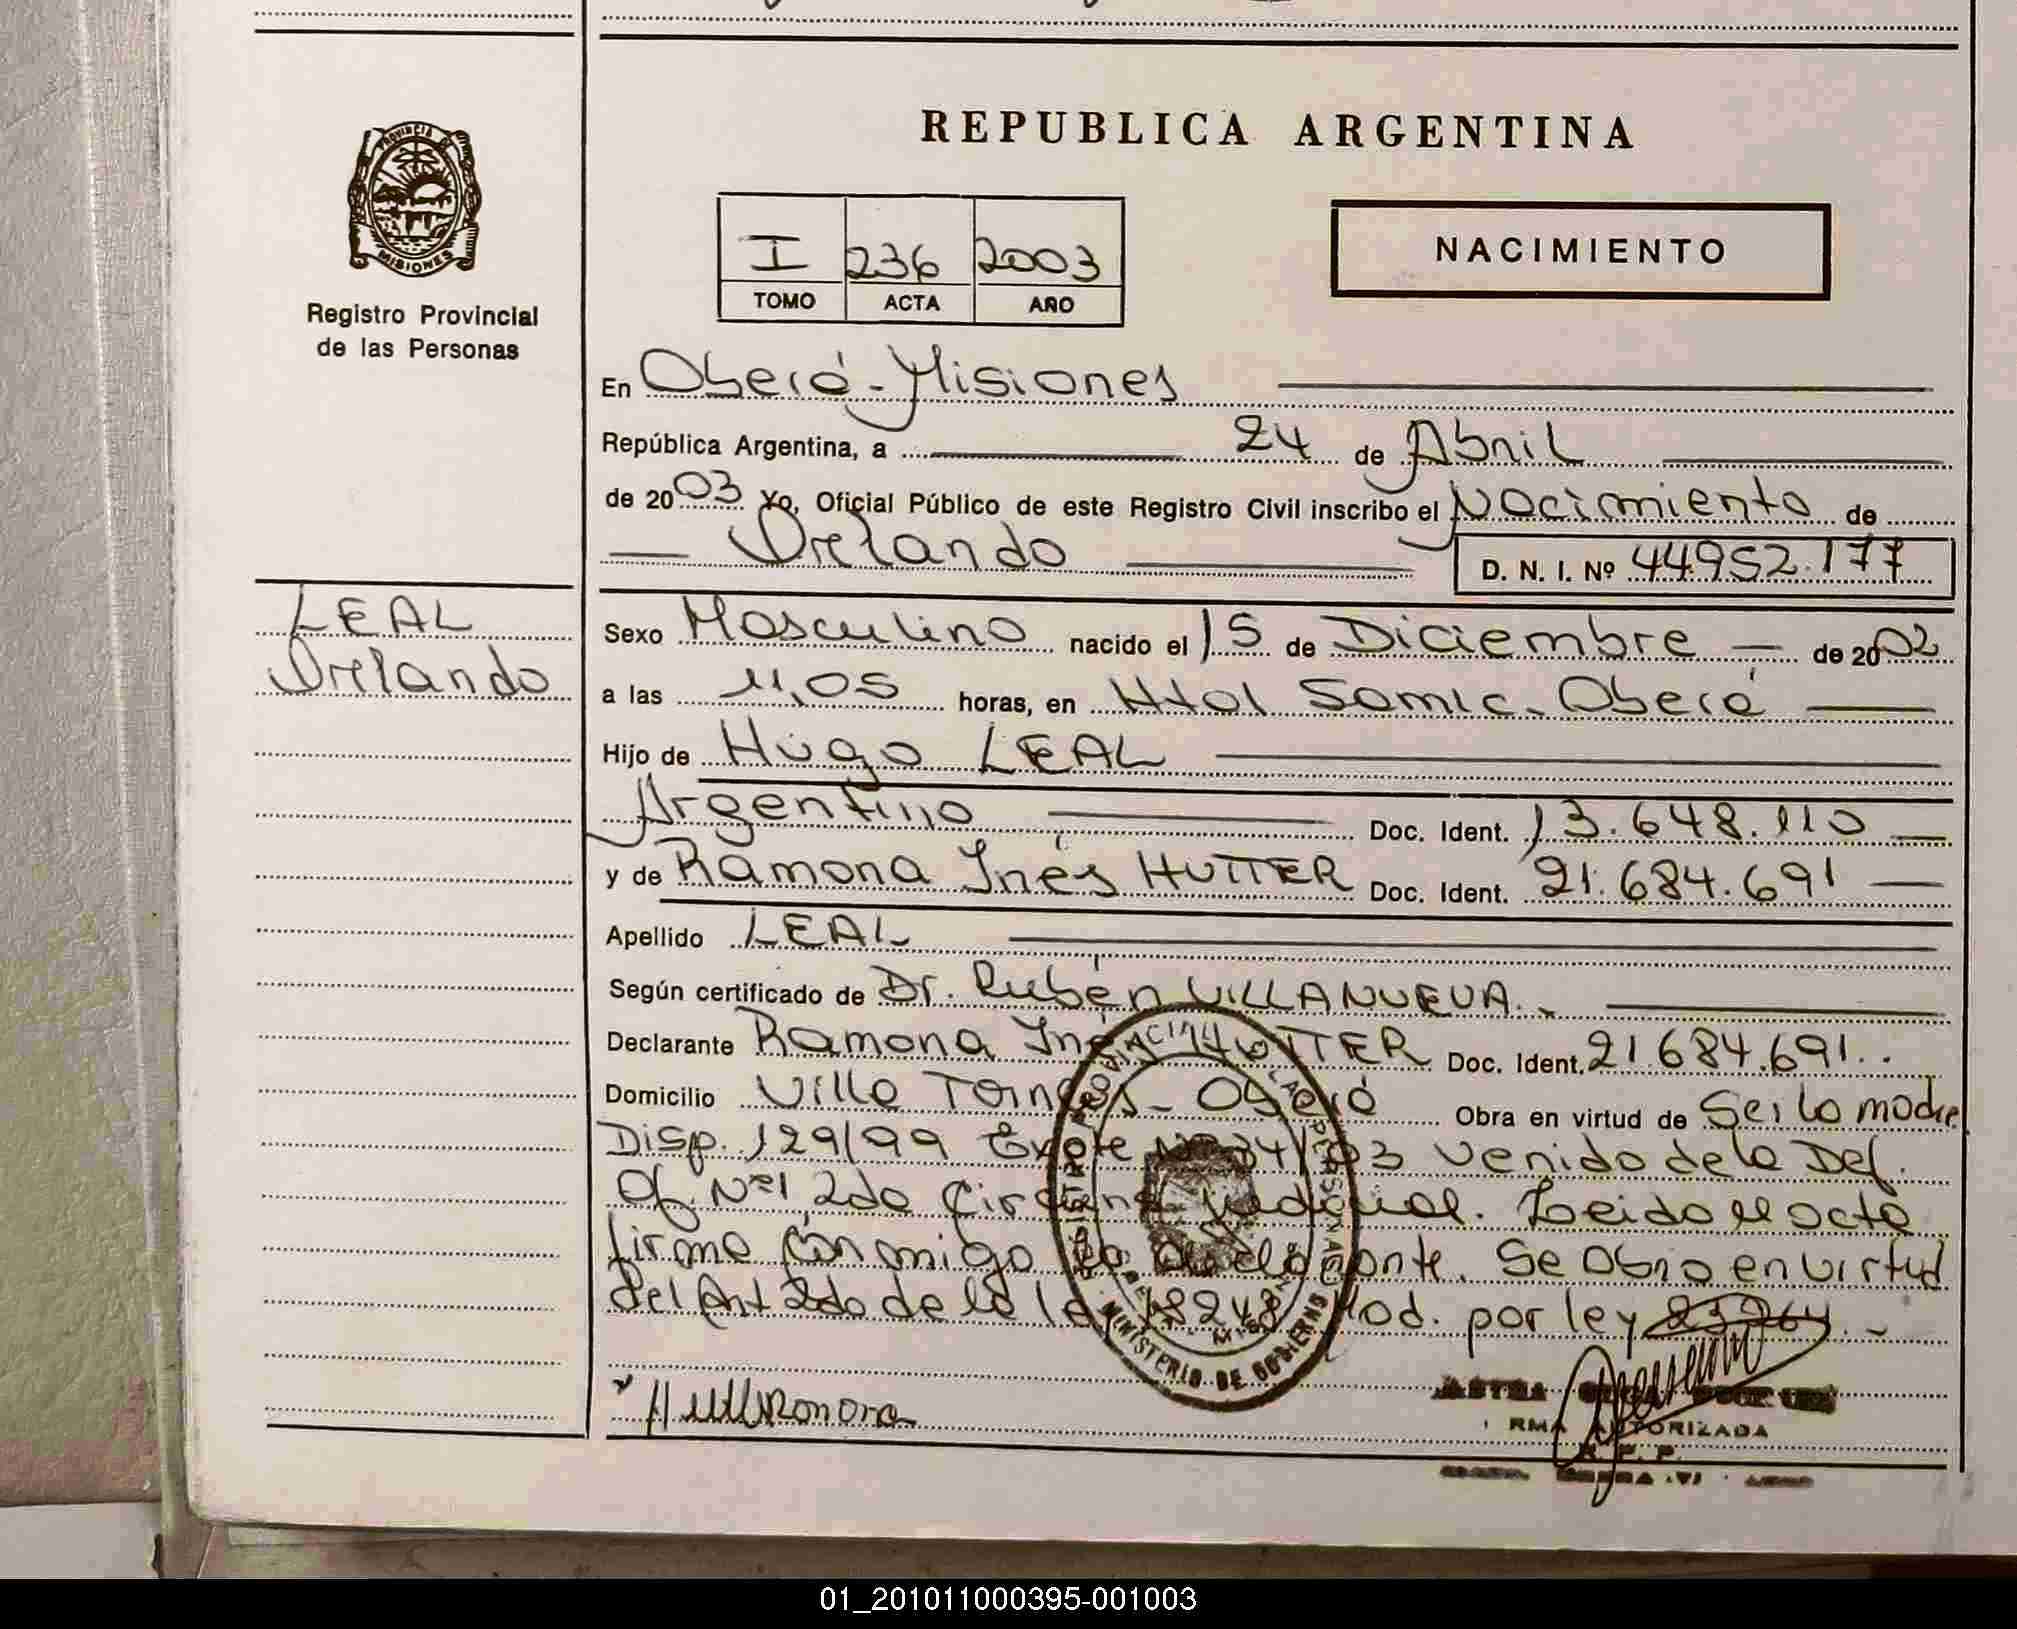 REPUBLICA ARGENTINA
PROVINCIA DE
MISIONES
Registro Provincial
de las Personas
I 236 2003
TOMO ACTA AÑO
NACIMIENTO
En Oberá - Misiones
República Argentina, a 24 de Abril
de 2003 Yo, Oficial Público de este Registro Civil inscribo el Nacimiento de
Orlando
D. N. I. Nº 44.952.177
LEAL
Orlando
Sexo Masculino nacido el 15 de Diciembre de 2002
a las 11,05 horas, en Htal Samic - Oberá
Hijo de Hugo LEAL
Argentino Doc. Ident. 13.648.110
y de Ramona Inés HUTTER Doc. Ident. 21.684.691
Apellido LEAL
Según certificado de Dr. Rubén VILLANUEVA.
Declarante Ramona Inés HUTTER Doc. Ident. 21.684.691..
Domicilio Villa Torneus - Oberá Obra en virtud de Ser la madre
Disp. 129/99 Expte Nº 34/03 venido de la Def.
Of. Nº1, 2da Circuns Judicial. Leida el acta
firma conmigo la declarante. Se Obra en virtud
del Art 2do de la ley 18248 Mod. por ley 23264.
REGISTRO PROVINCIAL DE LAS PERSONAS
MINISTERIO DE GOBIERNO
RMA AUTORIZADA
R. P. P.
01_201011000395-001003